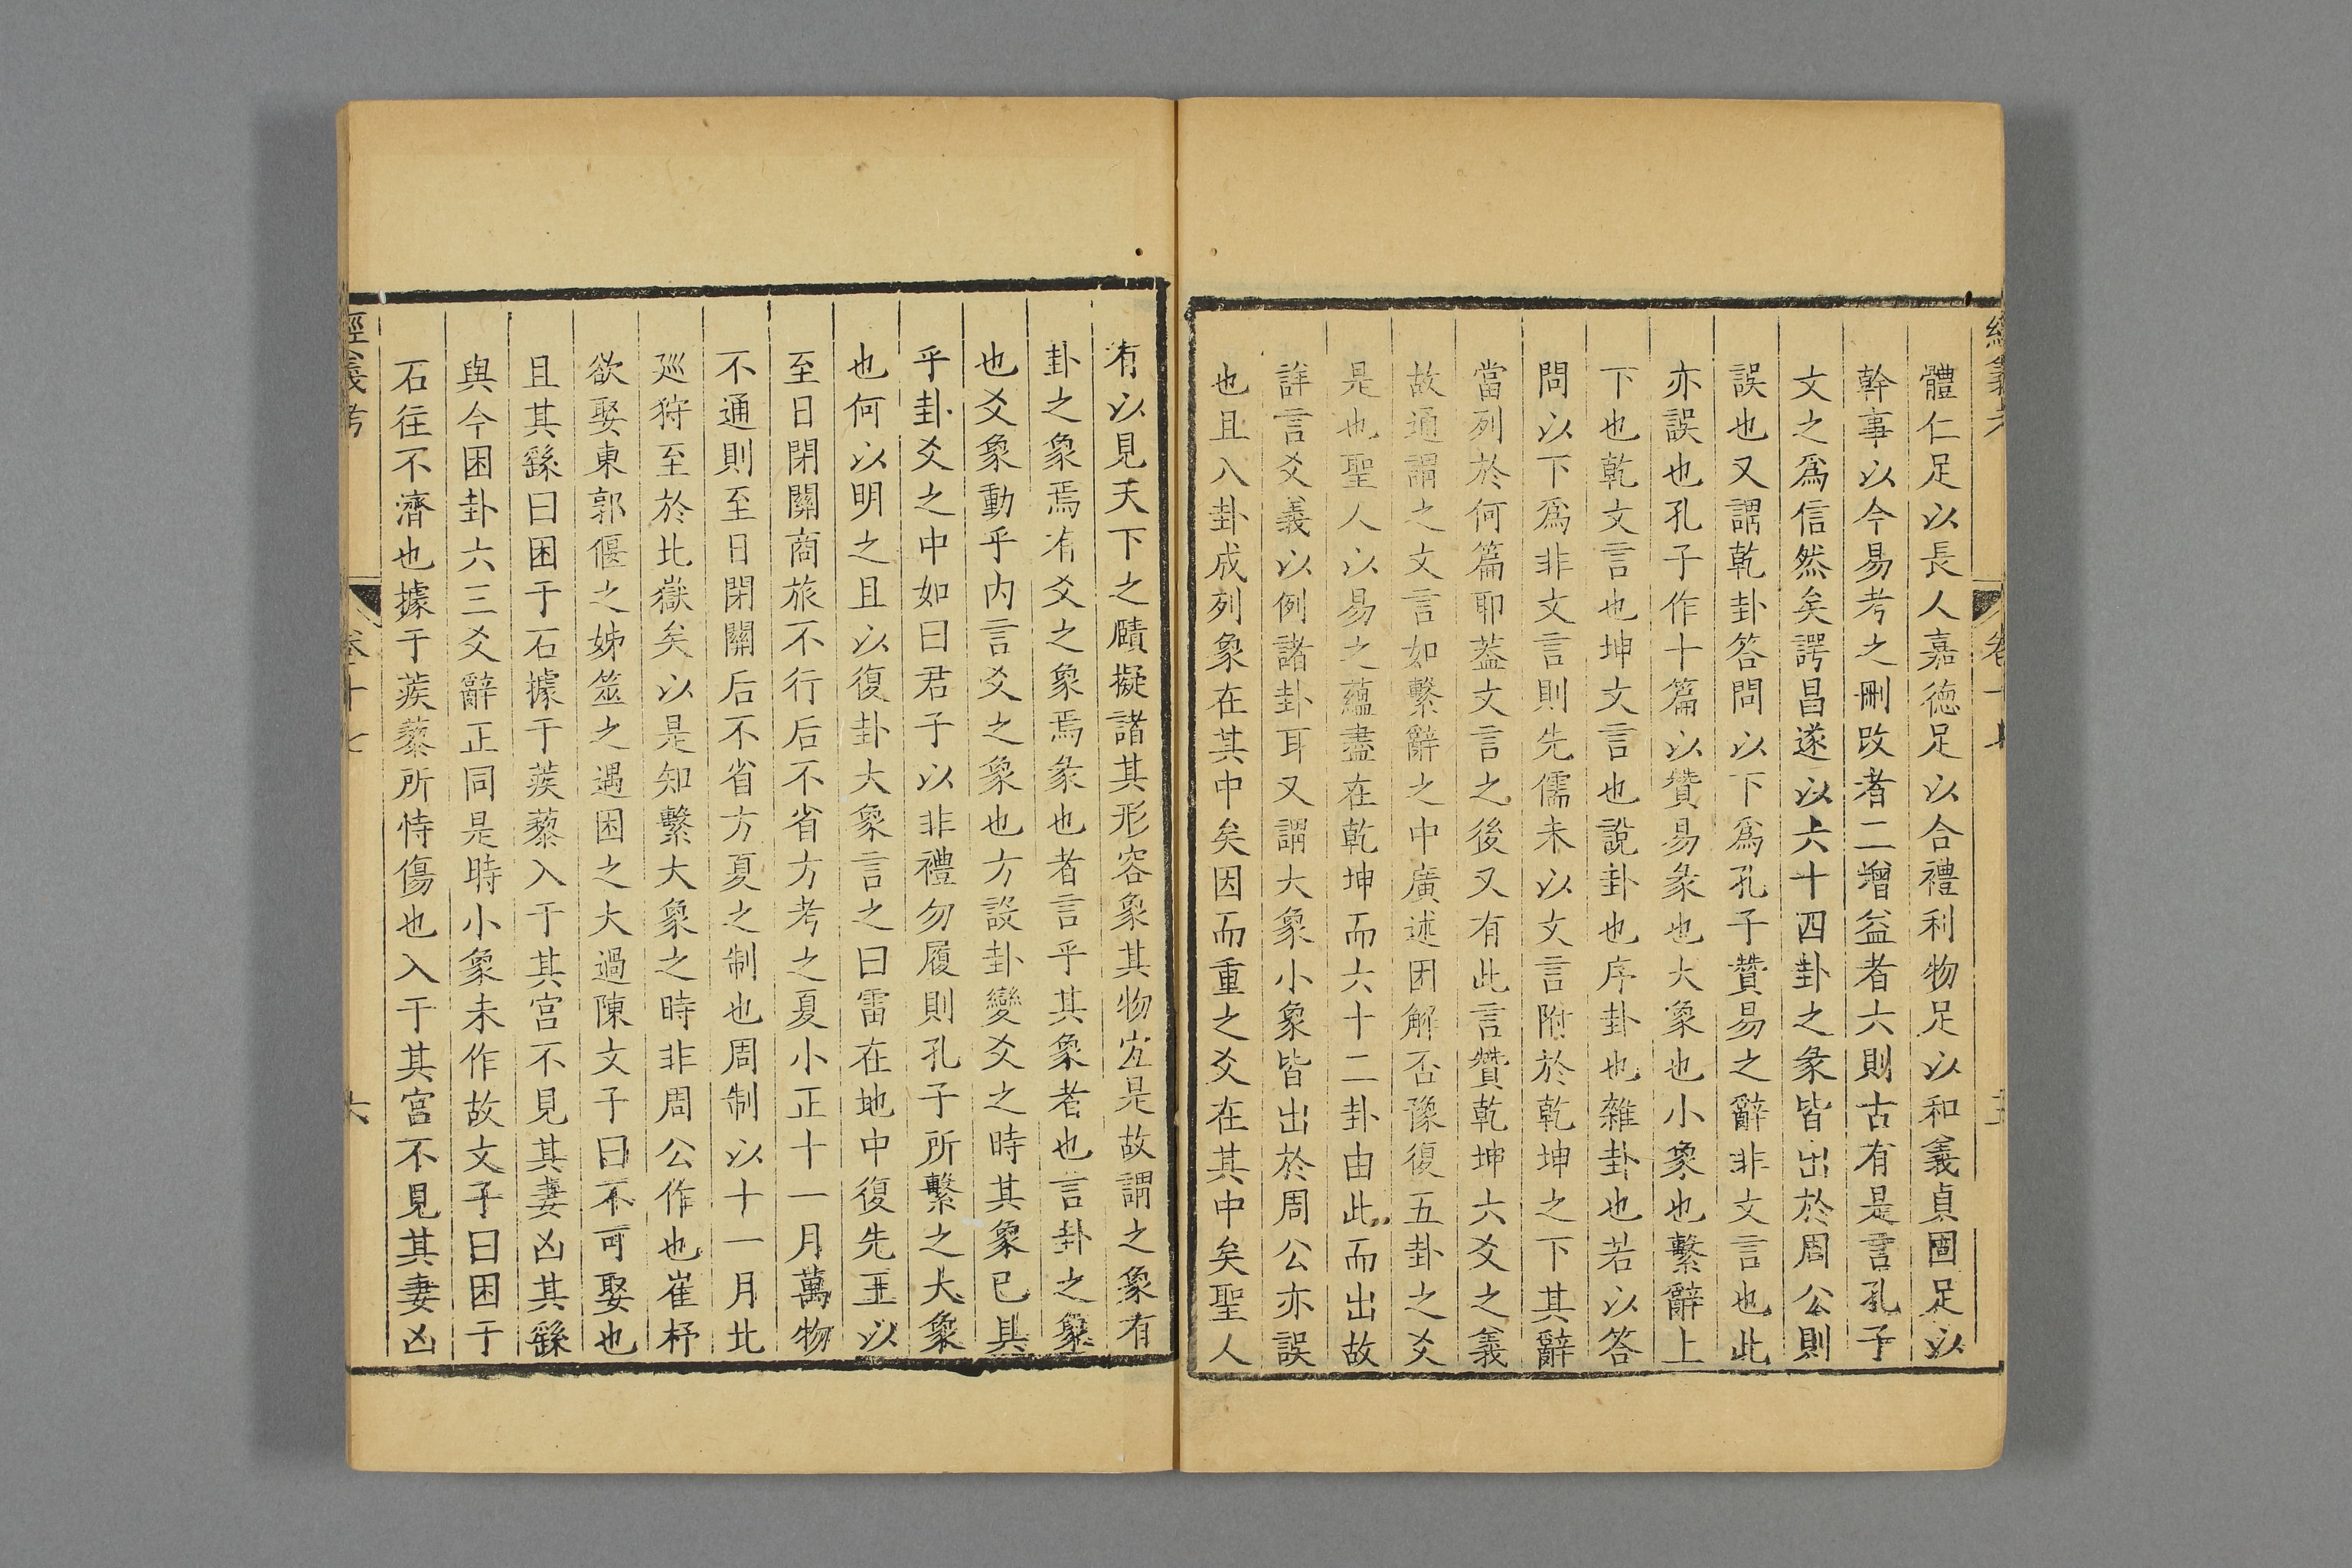 體仁足以長人嘉德足以合禮利物足以和義貞固足以
幹事以今易考之刪改者二增益者六則古有是言孔子
文之爲信然矣諤昌遂以六十四卦之彖皆出於周公則
誤也又謂乾卦答問以下爲孔子贊易之辭非文言也此
亦誤也孔子作十篇以贊易彖也大象也小象也繫辭上
下也乾文言也坤文言也說卦也序卦也雜卦也若以答
問以下爲非文言則先儒未以文言附於乾坤之下其辭
當列於何篇耶葢文言之後又有此言贊乾坤六爻之義
故通謂之文言如繫辭之中廣述困解否豫復五卦之爻
是也聖人以易之蘊盡在乾坤而六十二卦由此而出故
詳言爻義以例諸卦耳又謂大象小象皆出於周公亦誤
也且八卦成列象在其中矣因而重之爻在其中矣聖人
有以見天下之賾擬諸其形容象其物宜是故謂之象有
卦之象焉有爻之象焉彖也者言乎其象者也言卦之象
也爻象動乎內言爻之象也方設卦變爻之時其象已具
乎卦爻之中如曰君子以非禮勿履則孔子所繫之大象
也何以明之且以復卦大象言之曰雷在地中復先王以
至日閉關商旅不行后不省方考之夏小正十一月萬物
不通則至日閉關后不省方夏之制也周制以十一月北
廵狩至於北嶽矣以是知繫大象之時非周公作也崔杼
欲娶東郭偃之姊筮之遇困之大過陳文子曰不可娶也
且其繇曰困于石據于蒺藜入于其宮不見其妻凶其繇
與今困卦六三爻辭正同是時小象未作故文子曰困于
石往不濟也據于蒺藜所恃傷也入于其宮不見其妻凶
經義考
卷十七
六